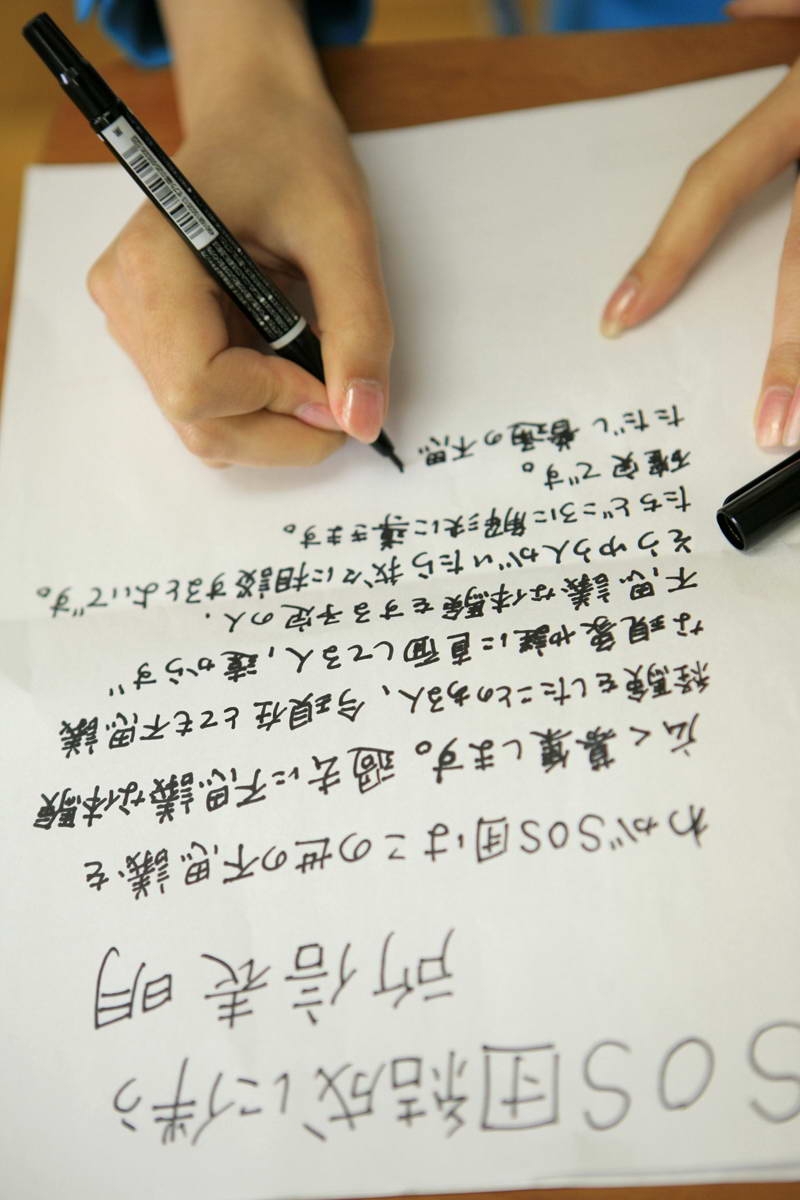 SOS団結成に伴う
所信表明
わがSOS団はこの世の不思議を
広く募集します。過去に不思議な体験
経験をしたことのある人、今現在とても不思議
な現象や謎に直面してる人、遠からず
不思議な体験をする予定の人、
そうゆう人がいたら我々に相談するとよいです。
たちどころに解決に導きます。
確実です。
ただし普通の不思